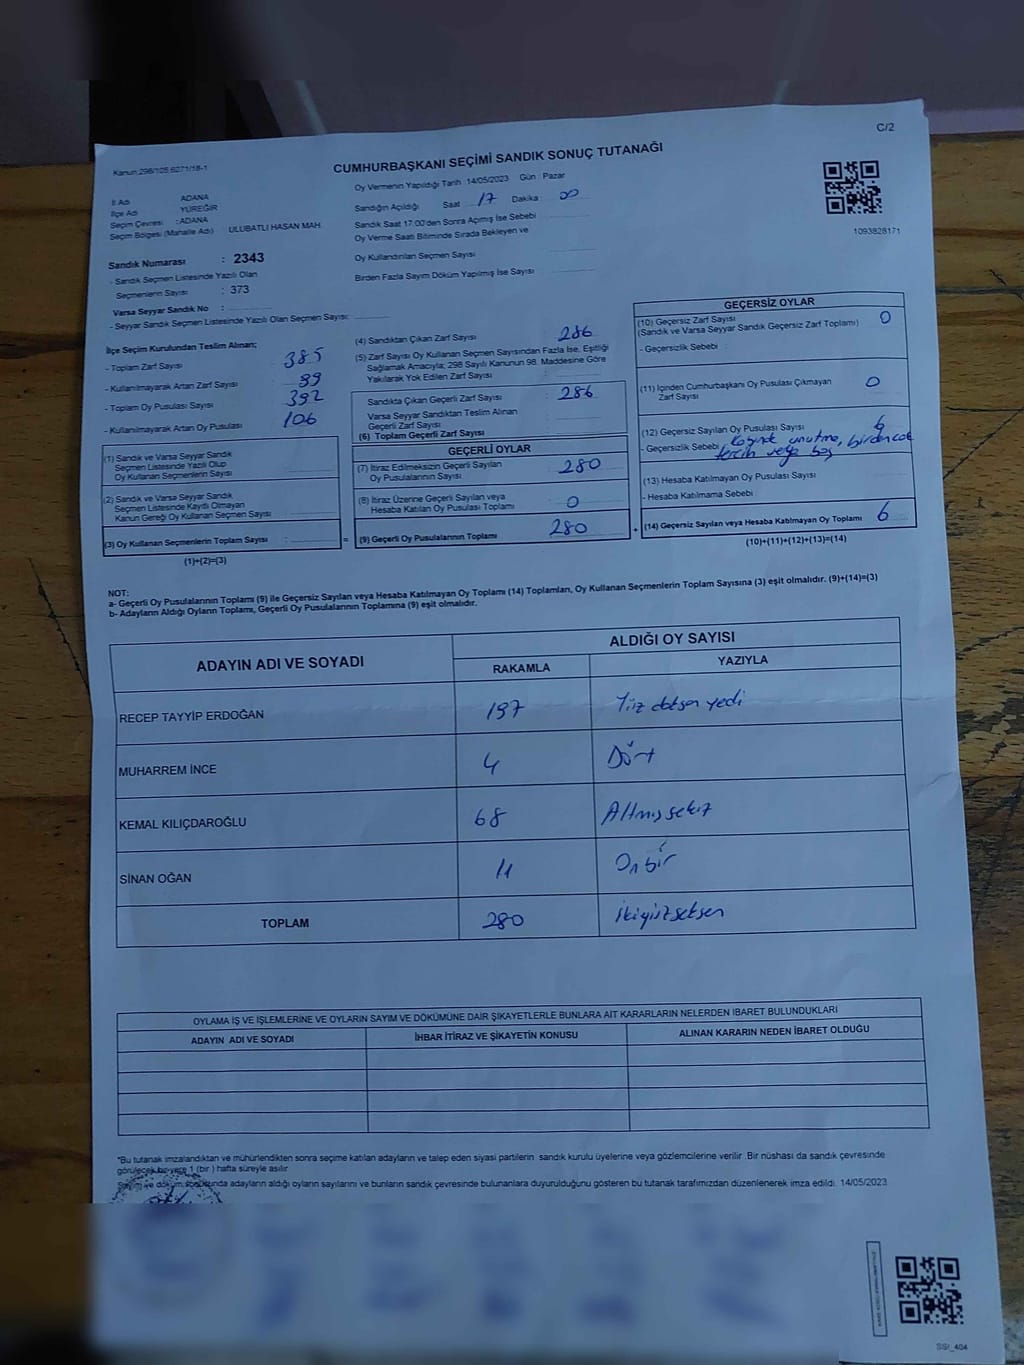 C/2
Kanun 298/105.6271/18-1
CUMHURBAŞKANI SEÇİMİ SANDIK SONUÇ TUTANAĞI
İl Adı ADANA
İlçe Adı YÜREĞİR
Seçim Çevresi : ADANA
Seçim Bölgesi (Mahalle Adı) ULUBATLI HASAN MAH
Sandık Numarası : 2343
- Sandık Seçmen Listesinde Yazılı Olan
Seçmenlerin Sayısı : 373
Varsa Seyyar Sandık No :
- Seyyar Sandık Seçmen Listesinde Yazılı Olan Seçmen Sayısı:
Oy Vermenin Yapıldığı Tarih 14/05/2023 Gün : Pazar
Sandığın Açıldığı Saat 17 Dakika 00
Sandık Saat 17:00'den Sonra Açılmış İse Sebebi
Oy Verme Saati Bitiminde Sırada Bekleyen ve
Oy Kullandırılan Seçmen Sayısı
Birden Fazla Sayım Döküm Yapılmış İse Sayısı
1093828171
İlçe Seçim Kurulundan Teslim Alınan;
- Toplam Zarf Sayısı 385
- Kullanılmayarak Artan Zarf Sayısı 99
- Toplam Oy Pusulası Sayısı 392
- Kullanılmayarak Artan Oy Pusulası 106
(1) Sandık ve Varsa Seyyar Sandık
Seçmen Listesinde Yazılı Olup
Oy Kullanan Seçmenlerin Sayısı
(2) Sandık ve Varsa Seyyar Sandık
Seçmen Listesinde Kayıtlı Olmayan
Kanun Gereği Oy Kullanan Seçmen Sayısı
(3) Oy Kullanan Seçmenlerin Toplam Sayısı : =
(1)+(2)=(3)
(4) Sandıktan Çıkan Zarf Sayısı 286
(5) Zarf Sayısı Oy Kullanan Seçmen Sayısından Fazla İse, Eşitliği
Sağlamak Amacıyla; 298 Sayılı Kanunun 98. Maddesine Göre
Yakılarak Yok Edilen Zarf Sayısı
Sandıkta Çıkan Geçerli Zarf Sayısı : 286
Varsa Seyyar Sandıktan Teslim Alınan
Geçerli Zarf Sayısı
(6) Toplam Geçerli Zarf Sayısı
GEÇERLİ OYLAR
(7) İtiraz Edilmeksizin Geçerli Sayılan
Oy Pusulasının Sayısı 280
(8) İtiraz Üzerine Geçerli Sayılan veya
Hesaba Katılan Oy Pusulası Toplamı 0
(9) Geçerli Oy Pusulalarının Toplamı 280 +
GEÇERSİZ OYLAR
(10) Geçersiz Zarf Sayısı
(Sandık ve Varsa Seyyar Sandık Geçersiz Zarf Toplamı) 0
- Geçersizlik Sebebi
(11) İçinden Cumhurbaşkanı Oy Pusulası Çıkmayan
Zarf Sayısı 0
(12) Geçersiz Sayılan Oy Pusulası Sayısı 6
- Geçersizlik Sebebi unutma, birden çok
tercih veya boş
(13) Hesaba Katılmayan Oy Pusulası Sayısı
- Hesaba Katılmama Sebebi
(14) Geçersiz Sayılan veya Hesaba Katılmayan Oy Toplamı 6
(10)+(11)+(12)+(13)=(14)
NOT:
a- Geçerli Oy Pusulalarının Toplamı (9) ile Geçersiz Sayılan veya Hesaba Katılmayan Oy Toplamı (14) Toplamları, Oy Kullanan Seçmenlerin Toplam Sayısına (3) eşit olmalıdır. (9)+(14)=(3)
b- Adayların Aldığı Oyların Toplamı, Geçerli Oy Pusulalarının Toplamına (9) eşit olmalıdır.
ADAYIN ADI VE SOYADI
ALDIĞI OY SAYISI
RAKAMLA YAZIYLA
RECEP TAYYİP ERDOĞAN 197 Yüz doksan yedi
MUHARREM İNCE 4 Dört
KEMAL KILIÇDAROĞLU 68 Altmış sekiz
SİNAN OĞAN 11 On bir
TOPLAM 280 İkiyüz seksen
OYLAMA İŞ VE İŞLEMLERİNE VE OYLARIN SAYIM VE DÖKÜMÜNE DAİR ŞİKAYETLERLE BUNLARA AİT KARARLARIN NELERDEN İBARET BULUNDUKLARI
ADAYIN ADI VE SOYADI İHBAR İTİRAZ VE ŞİKAYETİN KONUSU ALINAN KARARIN NEDEN İBARET OLDUĞU
*Bu tutanak imzalandıktan ve mühürlendikten sonra seçime katılan adayların ve talep eden siyasi partilerin sandık kurulu üyelerine veya gözlemcilerine verilir .Bir nüshası da sandık çevresinde
görülecek bir yere 1 (bir ) hafta süreyle asılır
Sayım ve döküm sonucunda adayların aldığı oyların sayılarını ve bunların sandık çevresinde bulunanlara duyurulduğunu gösteren bu tutanak tarafımızdan düzenlenerek imza edildi. 14/05/2023
SSİ_404